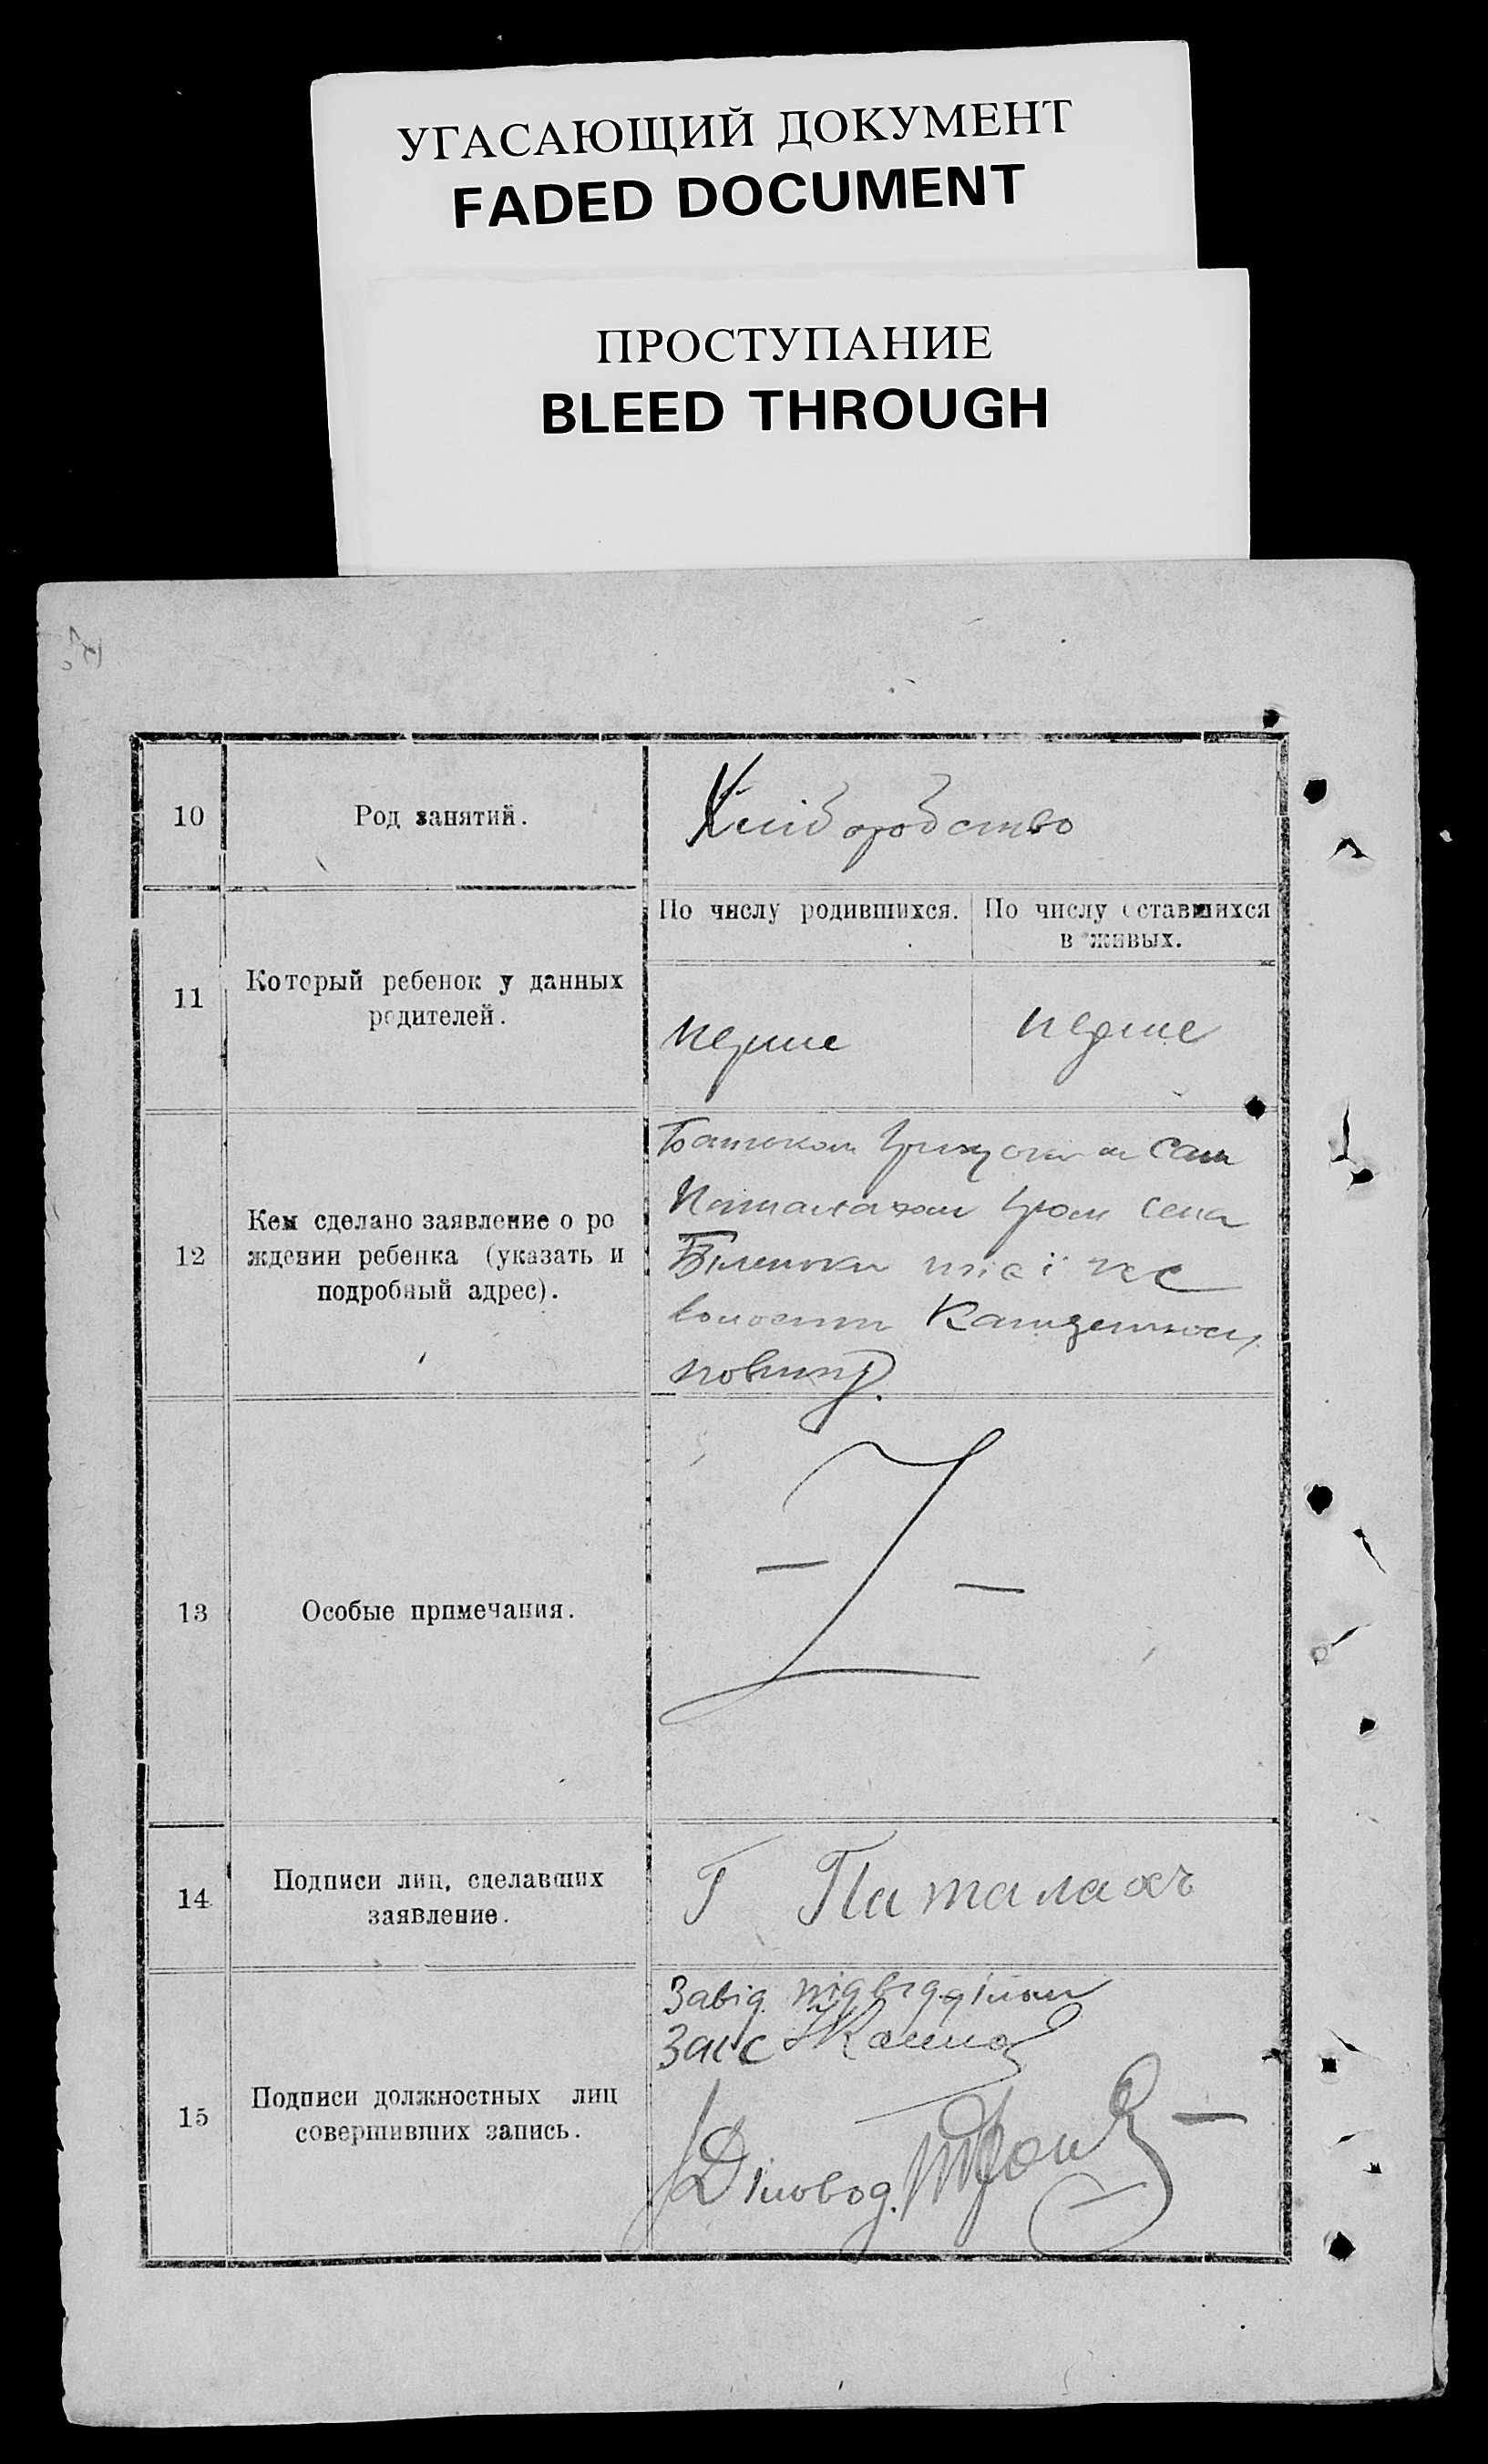 УГАСАЮЩИЙ ДОКУМЕНТ
FADED DOCUMENT
ПРОСТУПАНИЕ
BLEED THROUGH
10
Род занятий.
Хлібородство
11
Который ребенок у данных
родителей.
По числу родившихся.
По числу оставшихся
в живых.
перше
перше
12
Кем сделано заявление о ро
ждении ребенка (указать и
подробный адрес).
Батьком
села
Біленьки тиєї же
волости
повіту.
13
Особые примечания.
14
Подписи лиц, сделавших
заявление.
Г Паталахъ
15
Подписи должностных лиц
совершивших запись.
Завід. підвідділом
Загс
Діловод.